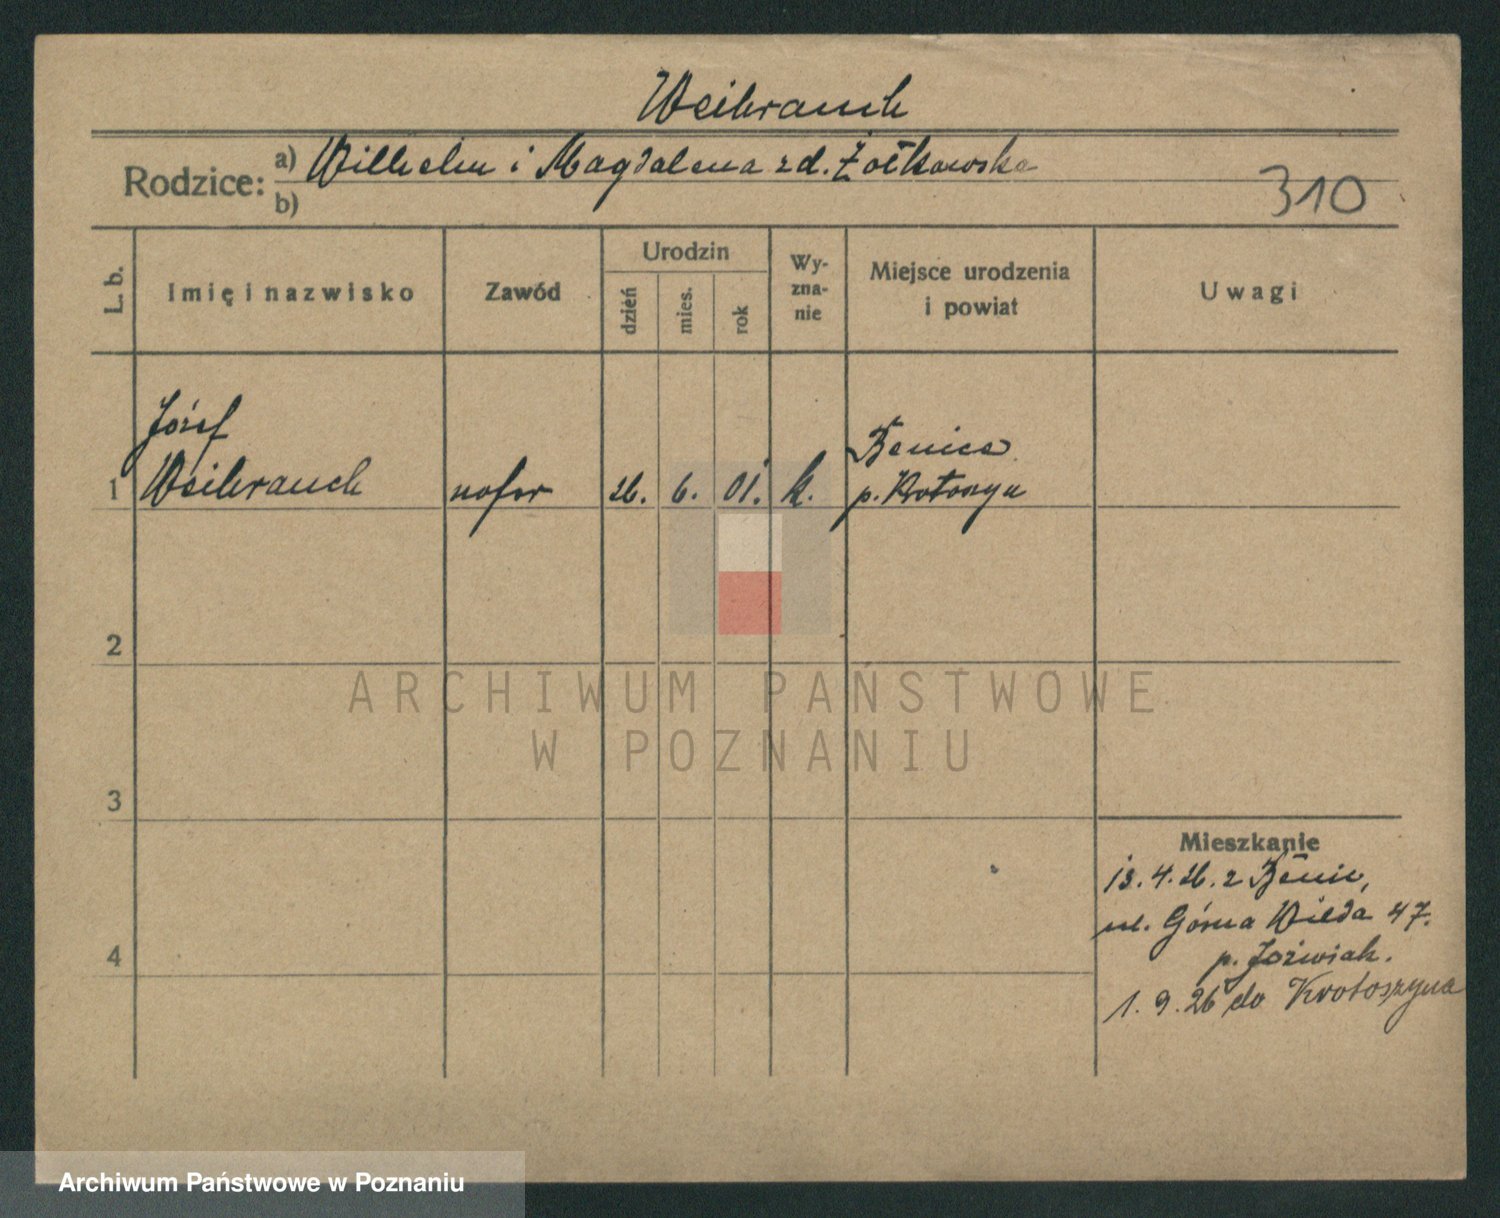 Weibrauch
Rodzice: a) Wilhelm i Magdalena zd. Żołkowska
b)
310
L. b.
Imię i nazwisko
Zawód
Urodzin
dzień
mies.
rok
Wy-
zna-
nie
Miejsce urodzenia
i powiat
Uwagi
Józef
1 Weibrauch
26. 6. 01. k.
Benice
p. Krotoszyn
2
3
4
Mieszkanie
13. 4. 26. z Benic,
ul. Górna Wilda 47.
p. Joźwiak.
1. 9. 26 do Krotoszyna
ARCHIWUM PAŃSTWOWE
W POZNANIU
Archiwum Państwowe w Poznaniu